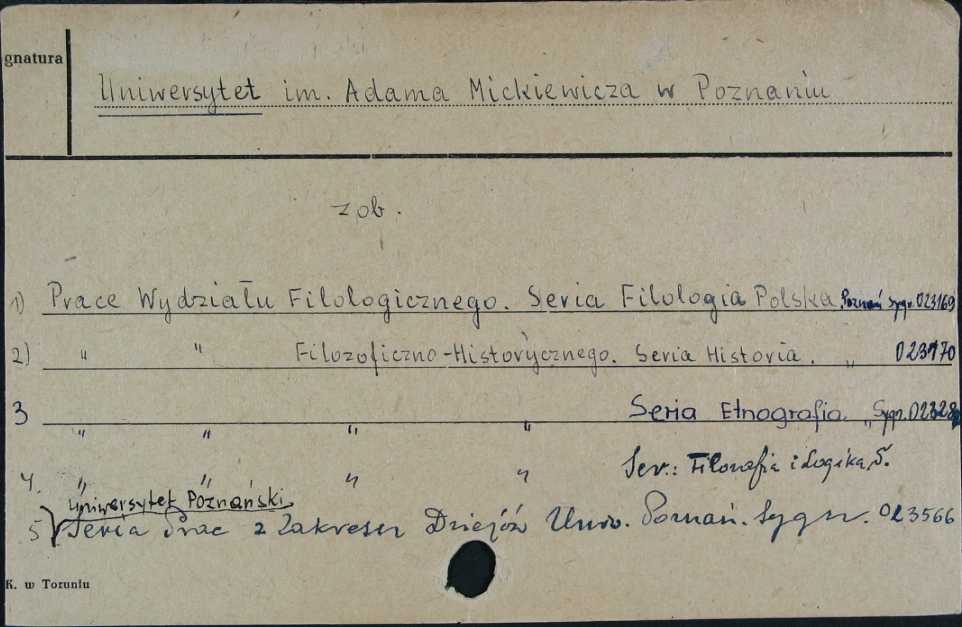 gnatura
Uniwersytet im. Adama Mickiewicza w Poznaniu
zob.
1) Prace Wydziału Filologicznego. Seria Filologia Polska, Poznań Sygn. 023169
2) " " Filozoficzno-Historycznego. Seria Historia. " 023170
3 " " " " Seria Etnografia. " Sygn. 02328
4. " " " " Ser.: Filozofia i Logika, S.
Uniwersytet Poznański
5) Seria Prac z Zakresu Dziejów Uniw. Poznań. Sygn. 023566
K. w Toruniu